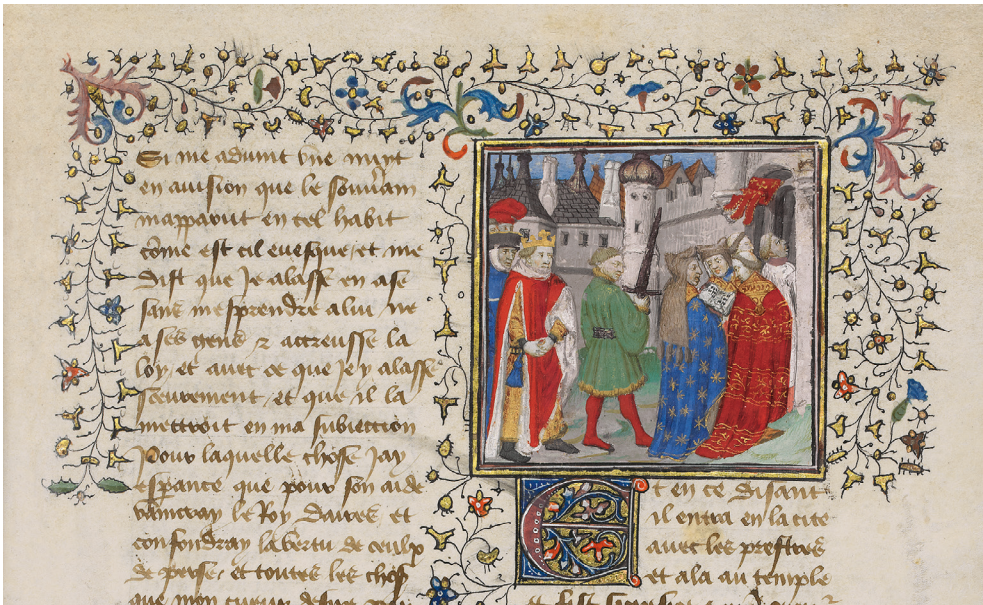 Si me aduint vne nuyt
en auision que le souuãin
mapparut en tel habit
cõme est cil euesque / et me
dist que Je alasse en ase
sans mesprendre a luy ne
a ses gens & acreusse la
loy / et auec ce que Je y alasse
seurement / et que il la
mettroit en ma subiection
Pour laquelle chose Jay
esperance que pour son aide
vaincray le Roy daires et
confondray la vertu de ceulx
de perse / et toutes les choses
que mon cueur desire
Et en ce disant
il entra en la cite
auec les prestres
et ala au temple